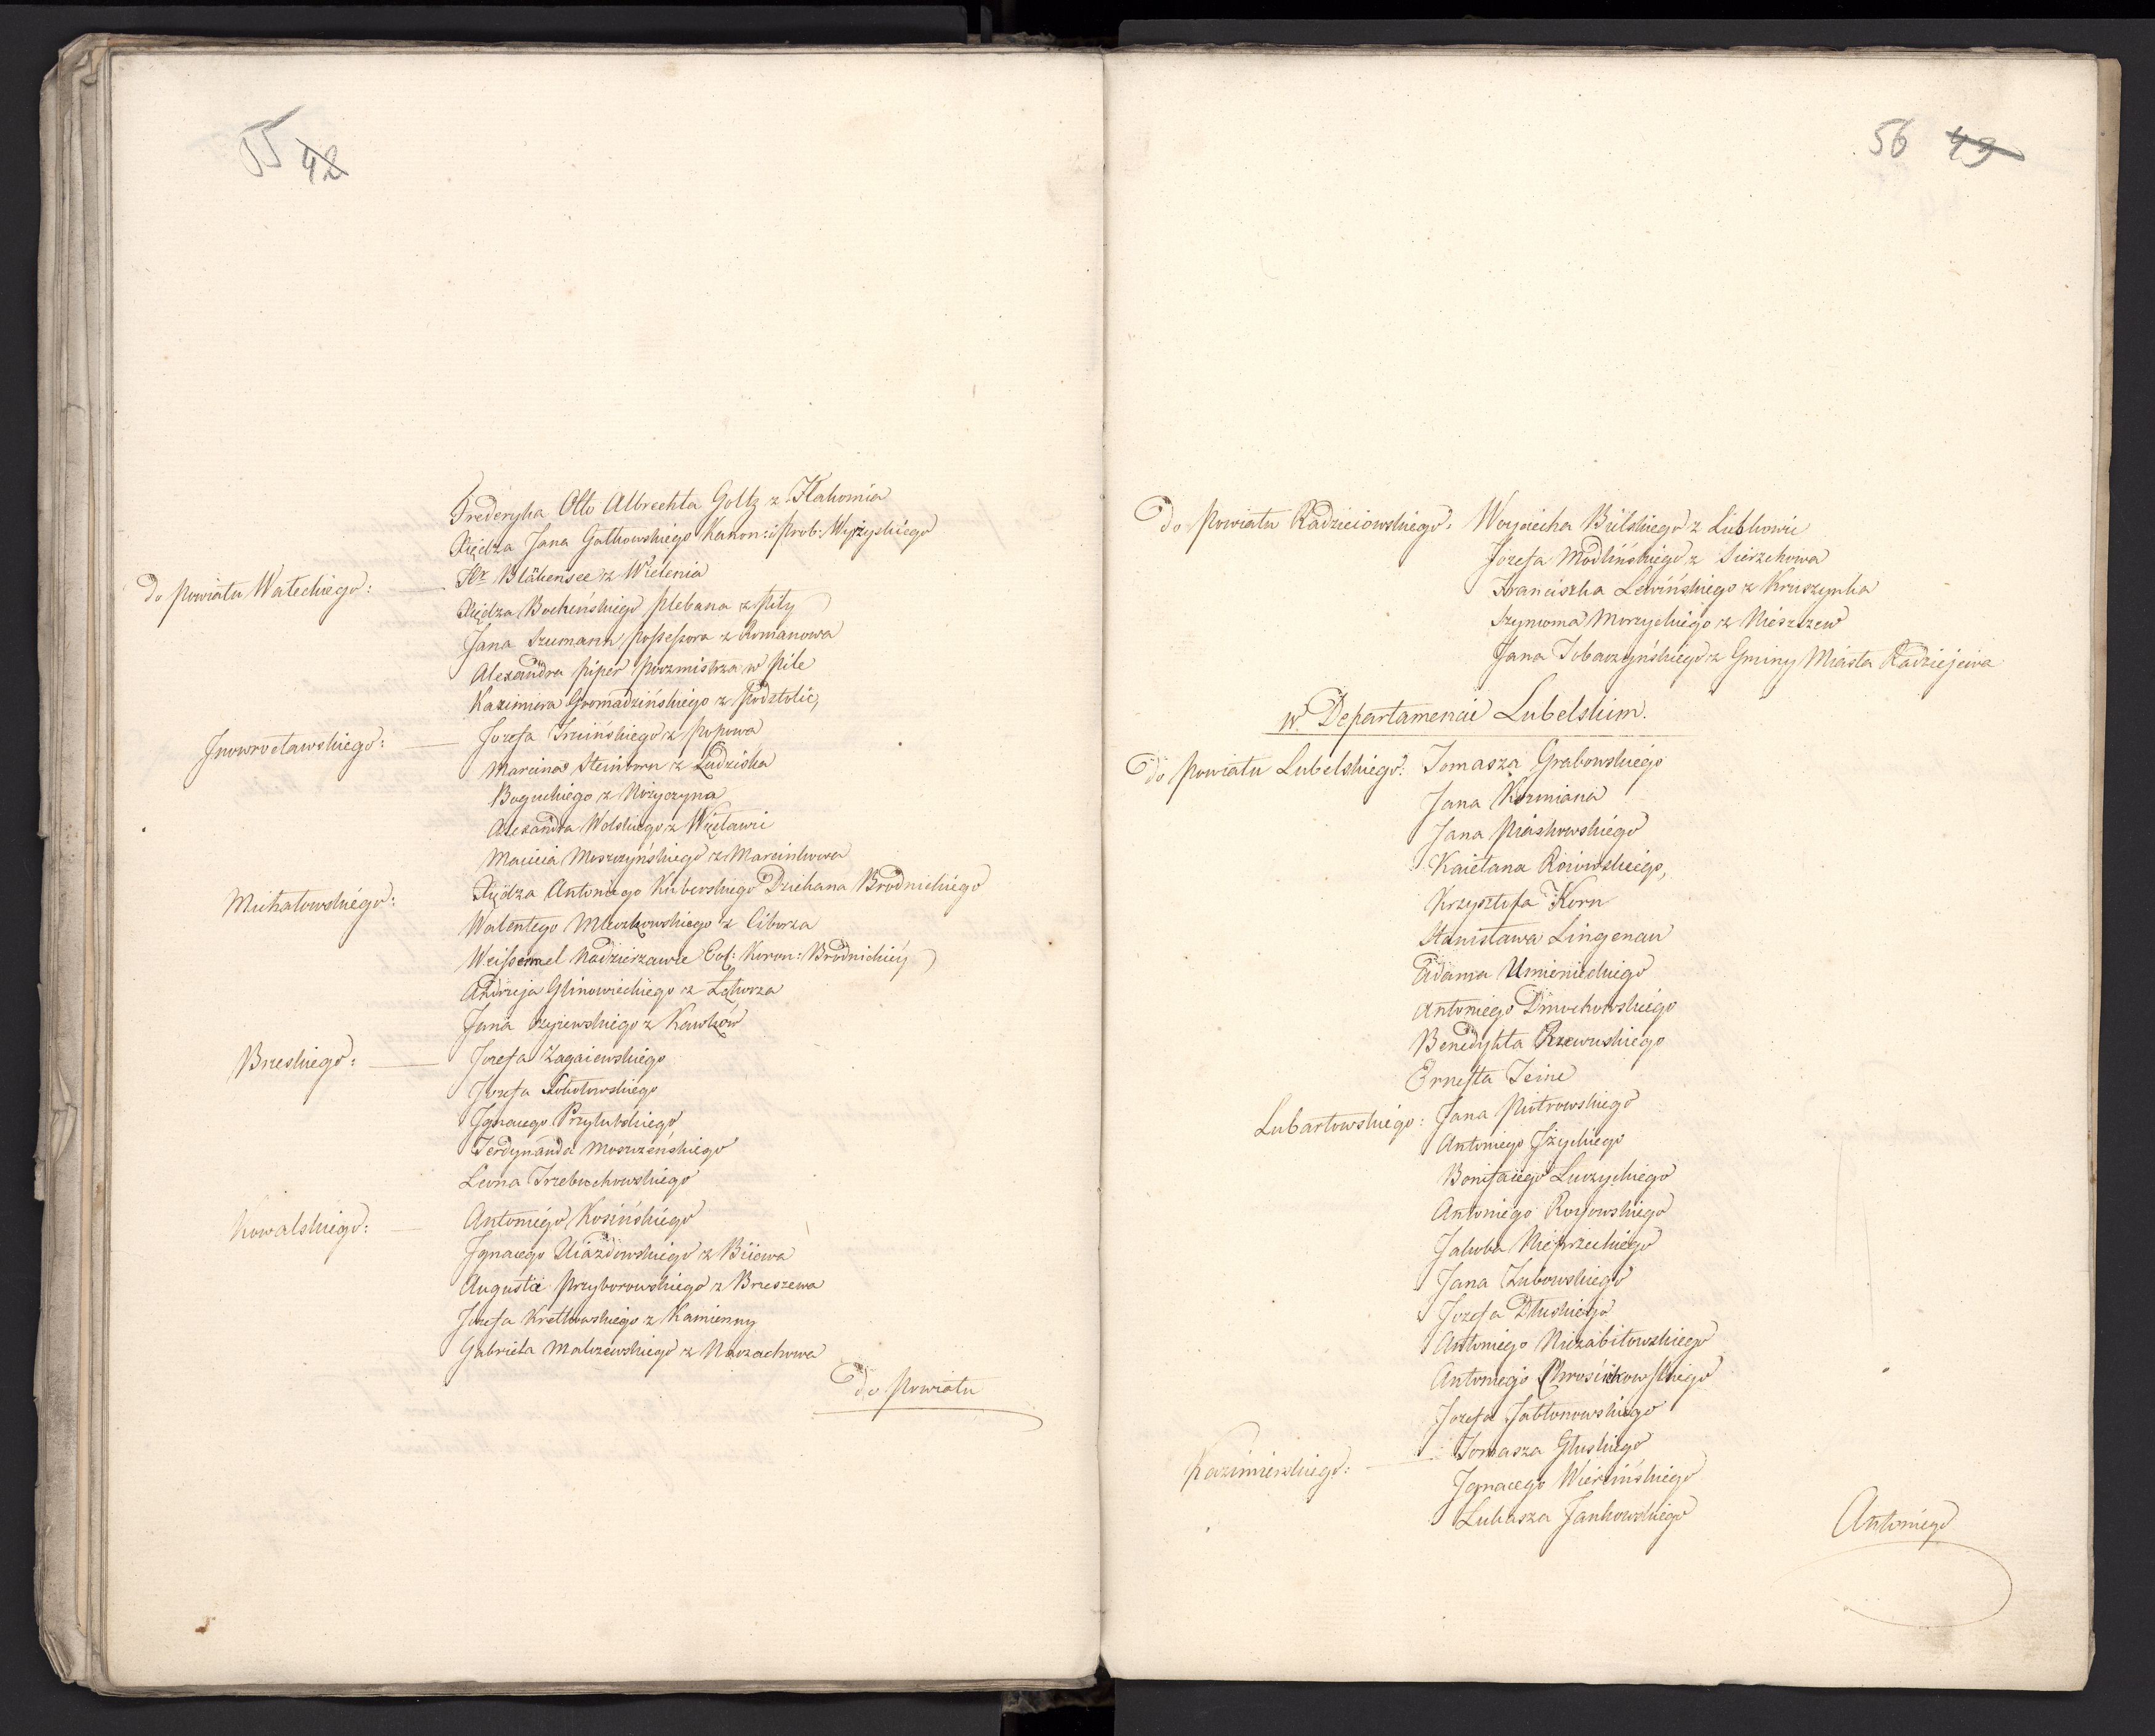 55 42
Frederyka Otto Albrechta Goltz z Kłakomia
Xiędza Jana Gałkowskiego Kanon: i Prob: Wyrzyskiego
Hr. Blākensee z Wielenia
do Powiatu Wałeckiego:
Xiędza Bocheńskiego Plebana z Piły
Jana Szumann possessora z Romanowa
Alexandra Piper Poczmistrza w Pile
Kazimiera Gromadzińskiego z Podstolic,
Inowrocławskiego: Jozefa Trzińskiego z Popowa
Marcina Steinborn z Ludziska
Boguckiego z Nożyczyna
Alexandra Wolskiego z Więsławic
Macieia Moszczyńskiego z Marcinkowa
Michałowskiego: Xiędza Antoniego Kuberskiego Dziekana Brodnickiego
Walentego Mleczkowskiego z Ciborza
Weissemel Nadzierzawce Eco: Koron: Brodnickiey
Andrzeja Glinowieckiego z Łękorza
Jana Czyiewskiego z Kawków
Brzeskiego: Jozefa Zagaiewskiego
Jozefa Sokołowskiego
Ignacego Przyłubskiego
Ferdynanda Moszczeńskiego
Leona Trzebuchowskiego
Kowalskiego: Antoniego Kosińskiego
Ignacego Uiazdowskiego z Biiewa
Augusta Przyborowskiego z Brzeszewa
Jozefa Kretkowskiego z Kamienny
Gabriela Malczewskiego z Naczachowa
do Powiatu
56 49
Do Powiatu Radzieiowskiego: Woyciecha Bielskiego z Lubkowic
Jozefa Modlińskiego z Sierzchowa
Franciszka Lewińskiego z Kruszynka
Szymona Morzyckiego z Nieszczew
Jana Tobaczyńskiego z Gminy Miasta Radziejewa
w. Departamencie Lubelskim.
Do Powiatu Lubelskiego: Tomasza Grabowskiego
Jana Kozmiana
Jana Piaskowskiego
Kaietana Roiowskiego,
Krzysztofa Korn
Stanisława Lingenau
Adama Umienieckiego
Antoniego Dmochowskiego
Benedykta Rzewuskiego
Ernesta Teine
Lubartowskiego: Jana Piotrowskiego
Antoniego Iżyckiego
Bonifacego Luczyckiego
Antoniego Rossowskiego
Jakuba Nieprzeckiego
Jana Zubowskiego
Jozefa Dłuskiego
Antoniego Niezabitowskiego
Antoniego Chrościkowskiego
Jozefa Jabłonowskiego
Kazimierskiego: Tomasza Głuskiego
Ignacego Wiercińskiego
Lukasza Jankowskiego
Antoniego